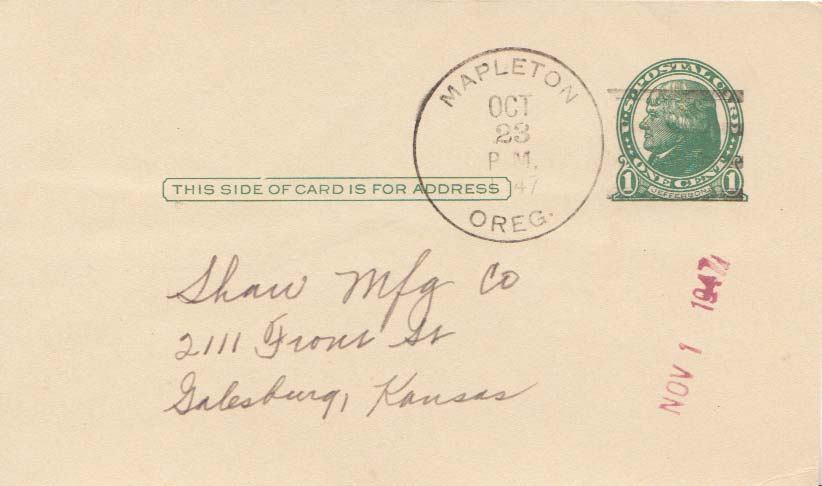 MAPLETON
OCT
23
P. M.
47
OREG.
U.S. POSTAL CARD
ONE CENT
1 JEFFERSON 1
THIS SIDE OF CARD IS FOR ADDRESS
Shaw Mfg Co
2111 Front St
Galesburg, Kansas
NOV 1 1947